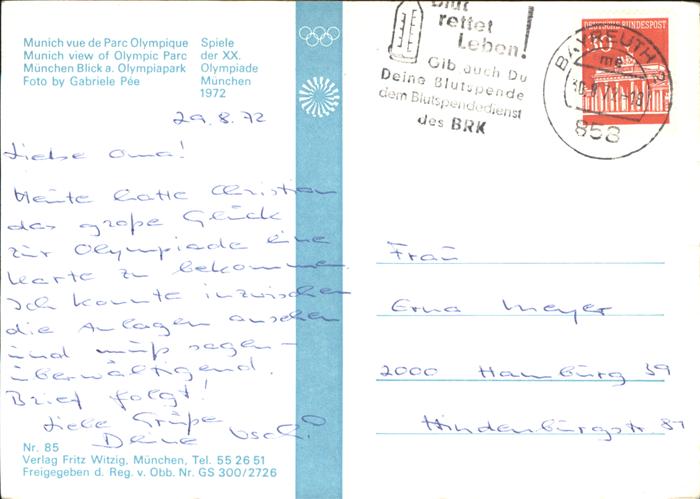 Munich vue de Parc Olympique
Munich view of Olympic Parc
München Blick a. Olympiapark
Foto by Gabriele Pée
Spiele
der XX.
Olympiade
München
1972
Blut
rettet
Leben!
Gib auch Du
Deine Blutspende
dem Blutspendedienst
des BRK
DEUTSCHE BUNDESPOST
30
BAYREUTH 2
858
29.8.72
Liebe Oma!
Heute hatte Christian
das große Glück
zur Olympiade eine
Karte zu bekommen.
Ich konnte inzwischen
die Anlagen ansehen
und muß sagen -
überwältigend.
Brief folgt!
Liebe Grüße
Deine Uschi
Frau
Erna Meyer
2000 Hamburg 39
Hindenburgstr 81
Nr. 85
Verlag Fritz Witzig, München, Tel. 55 26 51
Freigegeben d. Reg. v. Obb. Nr. GS 300/2726